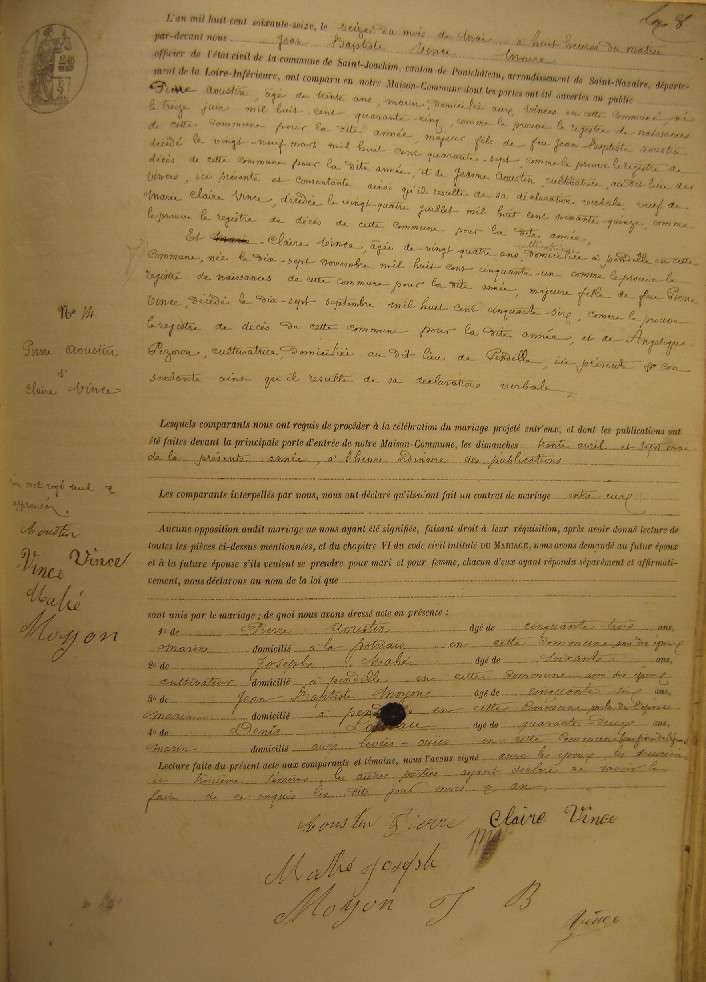 L'an mil huit cent soixante-seize, le seize du mois de Mai à huit heures du matin
par-devant nous Jean Baptiste Vince Maire
officier de l'état civil de la commune de Saint-Joachim, canton de Pontchâteau, arrondissement de Saint-Nazaire, départe-
ment de la Loire-Inférieure, ont comparu en notre Maison-Commune dont les portes ont été ouvertes au public
Pierre Aoustin, âgé de trente ans, marin, domicilié aux en cette commune, né
le treize juin mil huit cent quarante cinq, comme le prouve le registre de naissances
de cette commune pour la dite année, majeur fils de feu Jean Baptiste Aoustin
décédé le vingt-neuf mars mil huit cent quarante-sept, comme le prouve le registre de
décès de cette commune pour la dite année, et de Jeanne Aoustin, cultivatrice, au dit lieu des
ici présente et consentante ainsi qu'il résulte de sa déclaration verbale, veuf de
Marie Claire Vince, décédée le vingt-quatre juillet mil huit cent soixante quinze, comme
le prouve le registre de décès de cette commune pour la dite année,
Et Claire Vince, âgée de vingt quatre ans, domiciliée à pendille en cette
commune, née le dix-sept novembre mil huit cent cinquante-un comme le prouve le
registre de naissances de cette commune pour la dite année, majeure fille de feu Pierre
Vince, décédé le dix-sept septembre mil huit cent cinquante six, comme le prouve
le registre de décès de cette commune pour la dite année, et de Angélique
Moyon, cultivatrice, domiciliée au dit lieu de Pendille, ici présente & con
sentante ainsi qu'il résulte de sa déclaration verbale
No 14
Pierre Aoustin
&
Claire Vince
Lesquels comparants nous ont requis de procéder à la célébration du mariage projeté entr'eux, et dont les publications ont
été faites devant la principale porte d'entrée de notre Maison-Commune, les dimanches trente avril et sept mai
de la présente année, à l'heure ordinaire des publications
Les comparants interpellés par nous, nous ont déclaré qu'ils ont fait un contrat de mariage entre eux
un mot rayé nul &
approuvé.
Aoustin
Vince Vince
Mahé
Moyon
Aucune opposition audit mariage ne nous ayant été signifiée, faisant droit à leur réquisition, après avoir donné lecture de
toutes les pièces ci-dessus mentionnées, et du chapitre VI du code civil intitulé DU MARIAGE, nous avons demandé au futur époux
et à la future épouse s'ils veulent se prendre pour mari et pour femme, chacun d'eux ayant répondu séparément et affirmati-
vement, nous déclarons au nom de la loi que
sont unis par le mariage ; de quoi nous avons dressé acte en présence :
1° de Pierre Aoustin âgé de cinquante trois ans,
marin domicilié à la en cette Commune
2° de Joseph Mahé âgé de soixante ans,
cultivateur domicilié à pendille en cette Commune
3° de Jean Baptiste Moyon âgé de cinquante six ans,
marin domicilié à en cette Commune de l'épouse
4° de Denis âgé de quarante deux ans,
marin domicilié aux en cette Commune
Lecture faite du présent acte aux comparants et témoins, nous l'avons signé avec les époux les deuxième
et troisième témoins, les autres parties ayant déclaré ne savoir le
faire de ce requis les dits jour mois & an
Aoustin Pierre Claire Vince
Mahé Joseph
Moyon J B
Vince